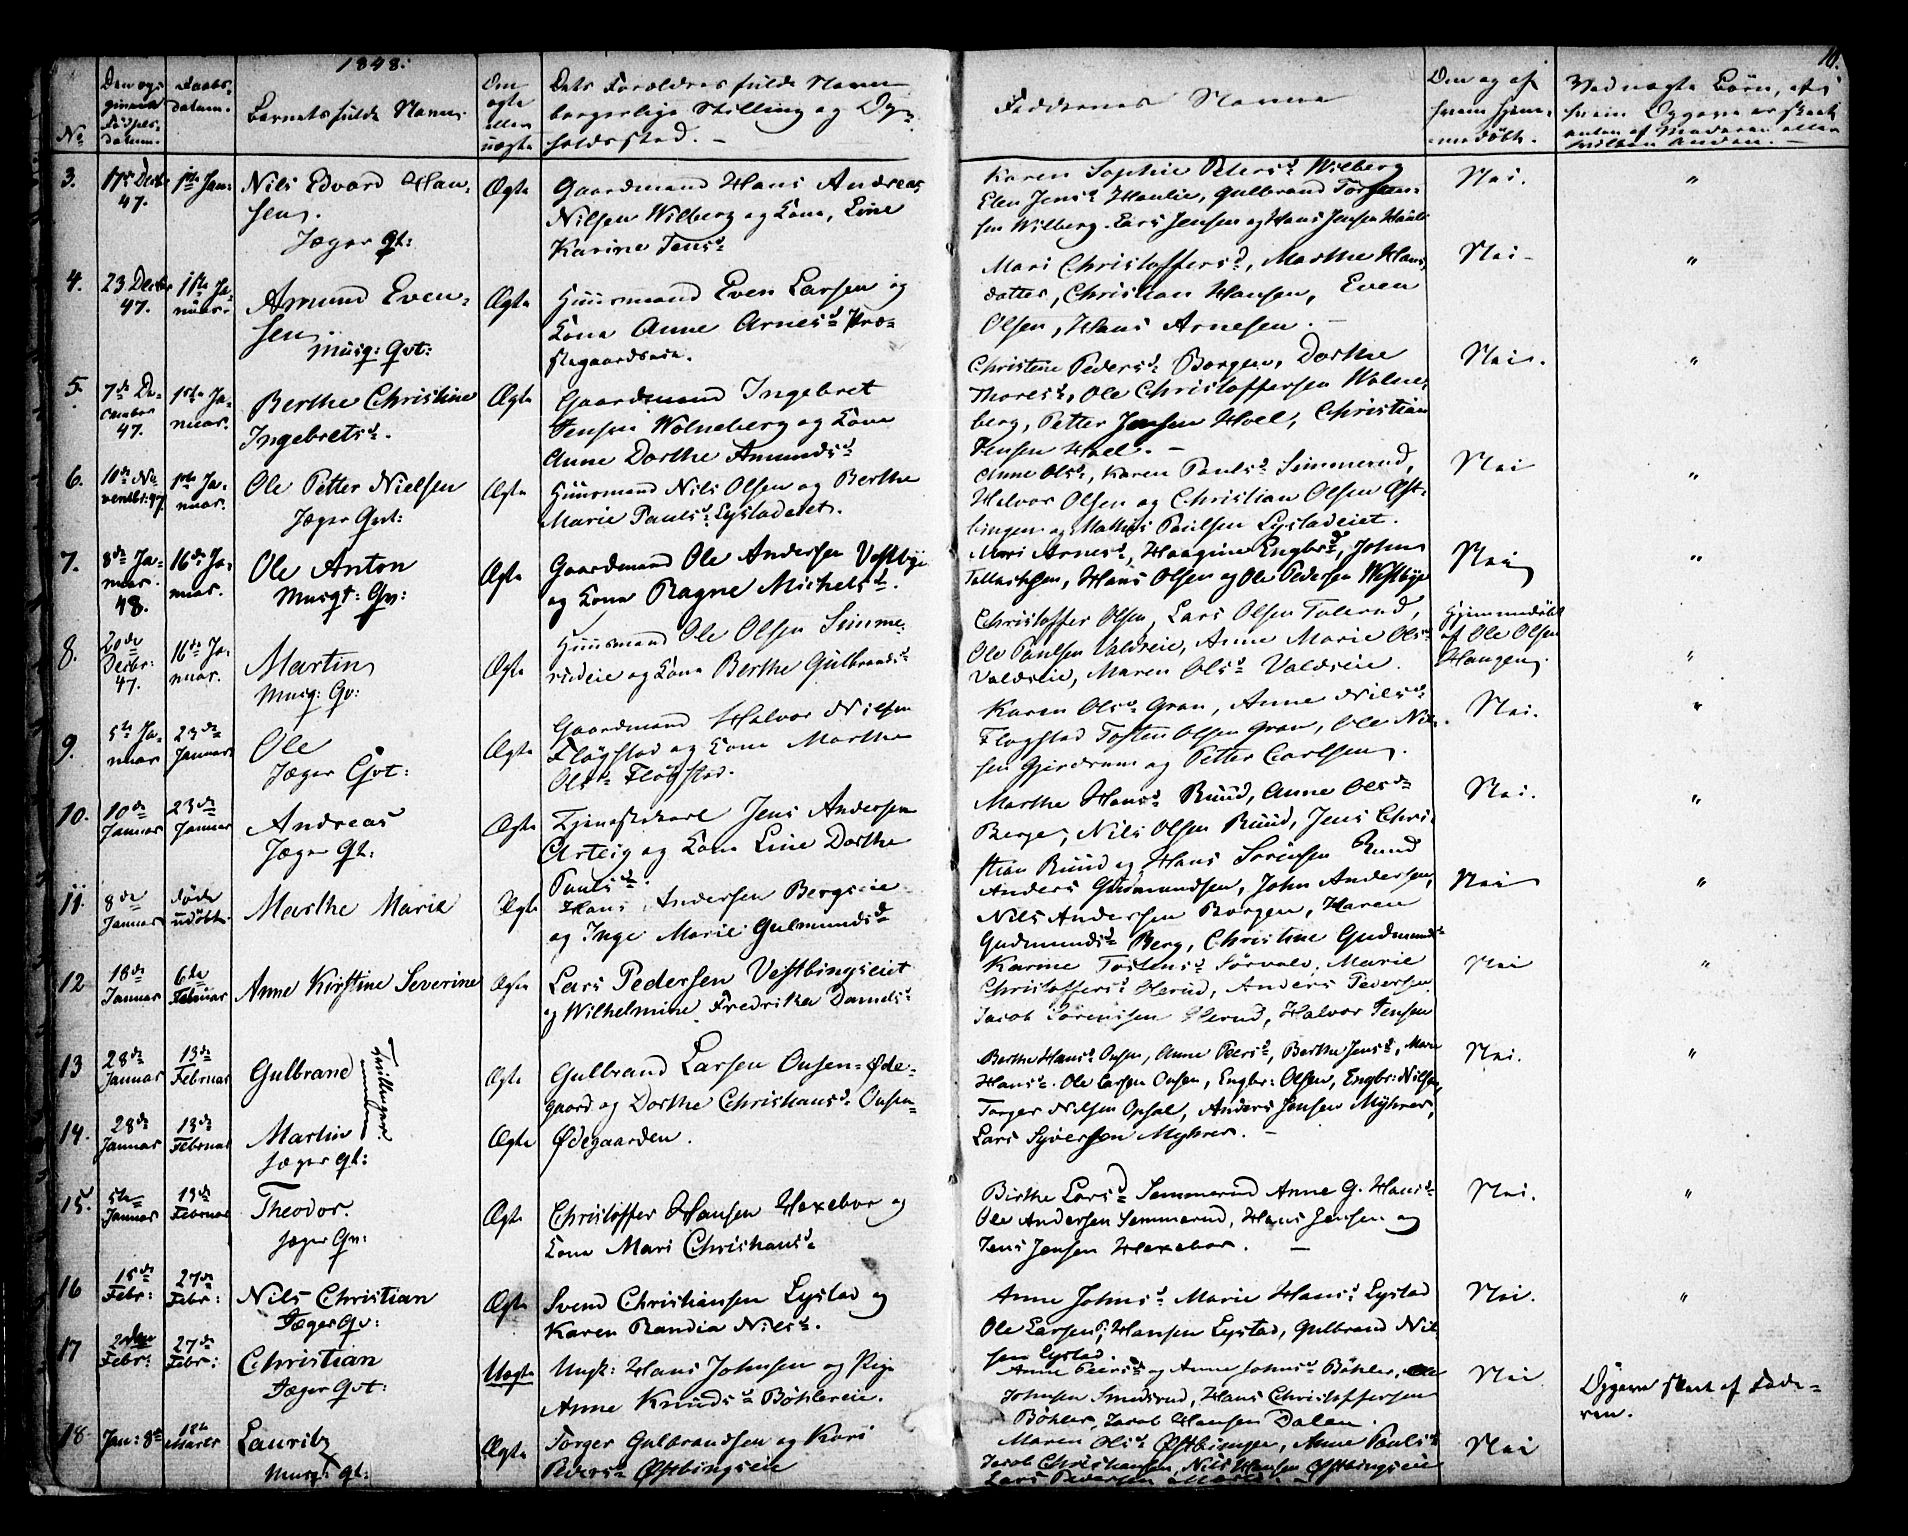 1848.
10.
No
Den op-
givne
Fødsels-
datum.
Daabs-
datum.
Barnets fulde Navn.
Om
ægte
eller
uægte
Dets Forældres fulde Navn
borgerlige Stilling og Op-
holdssted. —
Faddernes Navne
Om og af
hvem hjem-
medöbt.
Ved uægte Börn, af
hvem Opgave er skeet
enten af Moderen eller
hvilken Anden. —
3.
17de Decbr
47.
1ste Jan:
Nils Edvard Han-
sen.
Jæger Gt:
Ægte
Gaardmand Hans Andreas
Nilsen Wilberg og Kone, Line
Karine Jensd.
Karen Sophie Petersd Wilberg
Elen Jensd Haulie, Gulbrand Torsten-
sen Wilberg. Lars Jensen og Hans Jensen Haulie
Nei.
"
4.
23 Decbr
47.
1ste Ja-
nuar.
Amund Even-
sen
Musq: Gvt:
Ægte
Huusmand Even Larsen og
Kone Anne Arnesd Præ-
stegaardseie.
Mari Christoffersd, Marthe Hans-
datter, Christian Hansen, Even
Olsen, Hans Arnesen. —
Nei —
"
5.
7de De-
cember
47.
1ste Ja-
nuar.
Berthe Christine
Ingebretsd.
Ægte
Gaardmand Ingebret
Jensen Wolneberg og Kone
Anne Dorthe Amundsd
Christine Pedersd Borgen, Dorthe
Thoresd, Ole Christoffersen Wolne-
berg, Petter Jensen Hoel, Christian
Jensen Hoel. —
Nei.
"
6.
10de No-
vembr: 47
1ste Ja-
nuar.
Ole Petter Nielsen
Jæger Gvt:
Ægte
Huusmand Nils Olsen og Berthe
Marie Paulsd Lystadeiet.
Anne Olsd, Karen Paulsd Simmerud,
Halvor Olsen og Christian Olsen Øst-
bingen og Mathis Paulsen Lystadeiet.
Nei
"
7.
8de Ja-
nuar.
48.
16de Ja-
nuar.
Ole Anton
Musqt: Gv:
Ægte
Gaardmand Ole Andersen Vestbye
og Kone Ragne Michelsd.
Mari Arnesd, Haagine Engbrd, Johns
Tollefsen, Hans Olsen og Ole Pedersen Westbye
Nei
"
8.
20de
Decbr:
47.
16de Ja-
nuar.
Martin
Musq: Gv:
Ægte
Huusmand Ole Olsen Simme-
rudeie og Kone Berthe Gulbrandsd
Christoffer Olsen, Lars Olsen Tolerud,
Ole Paulsen Valdseie, Anne Marie Olsd
Valdseie, Maren Olsd Valdseie.
Hjemmedöbt
af Ole Olsen
Haugen.
"
9.
5te Ja-
nuar
23de
Januar
Ole
Jæger Gvt:
Ægte
Gaardmand Halvor Nilsen
Flögstad og Kone Marthe
Olsd Flögstad.
Karen Olsd Gran, Anne Nilsd
Flogstad Tosten Olsen Gran, Ole Nil-
sen Gjerdrum og Petter Carlsen.
Nei.
"
10.
10de
Januar
23de
Januar
Andreas
Jæger Gt:
Ægte
Tjenestekarl Jens Andersen
Asteig og Kone Line Dorthe
Paulsd.
Marthe Hansd Ruud, Anne Olsd
Berge, Nils Olsen Ruud, Jens Chri-
stian Ruud og Hans Sörensen Ruud
Nei.
"
11.
8de
Januar
Döde
udöbt
Marthe Marie
Ægte
Hans Andersen Bergseie
og Inge Marie Gulmundsd
Anders Gudmundsen, John Andersen,
Nils Andersen Borgen, Karen
Gudmundsd Berg, Christine Gudmundsd
Nei
"
12
18de
Januar
6te
Februar
Anne Kirstine Severine
Ægte
Lars Pedersen Vestbingseiet
og Wilhelmine Fredrikke Danielsd
Karine Tostensd Sörvald, Marie
Christoffersd Herud, Anders Pedersen
Jacob Sörensen Herud, Halvor Jensen
Nei
"
13
28de
Januar
13de
Februar
Gulbrand
Tvillinger.
Ægte
Gulbrand Larsen Onsen-Øde-
gaard og Dorthe Christiansd Onsen-
Berthe Hansd Onsen, Anne Peersd, Berthe Jensd, Mari
Hansd. Ole Larsen Onsen, Engbr: Olsen, Engbr: Nilsen,
Nei.
"
14.
28de
Januar
13de
Februar
Martin
Jæger Gt:
Ægte
Ødegaarden.
Torger Nilsen Opsal, Anders Jensen Myhrer,
Lars Syversen Myhrer. —
15.
5te
Januar
13de
Februar
Theodor.
Jæger Gv:
Ægte
Christoffer Hansen Hexebor og
Kone Mari Christiansd
Birthe Larsd Semmerud Anne G. Hansd
Ole Andersen Semmerud, Hans Jensen og
Jens Jensen Hexebor. —
Nei.
"
16
15de
Febr:
27de
Febr:
Nils Christian
Jæger Gv:
Ægte
Svend Christiansen Lystad og
Karen Randia Nilsd.
Anne Johnsd Marie Hansd Lystad
Ole Larsen, Hansen Lystad, Gulbrand Nil-
sen Lystad.
Nei.
"
17
2den
Febr:
27de
Febr:
Christian
Jæger Gvt:
Uægte
Ungk: Hans Johnsen og Pige
Anne Knudsd Böhlereie.
Anne Peersd og Anne Johnsd Böhler, Ole
Johnsen Smedsrud, Hans Christoffersen
Böhler, Jacob Hansen Dalen.
Nei
Opgave skeet af Fade-
ren.
18
Jan: 8de
12te
Marts
Lauritz
Musqt: Gt:
Ægte
Torger Gulbrandsen og Kari
Pedersd Østbingseie
Maren Olsd Østbingen, Anne Paulsd
Jacob Christiansen, Nils Hansen Østbingseie
Lars Pedersen
Nei